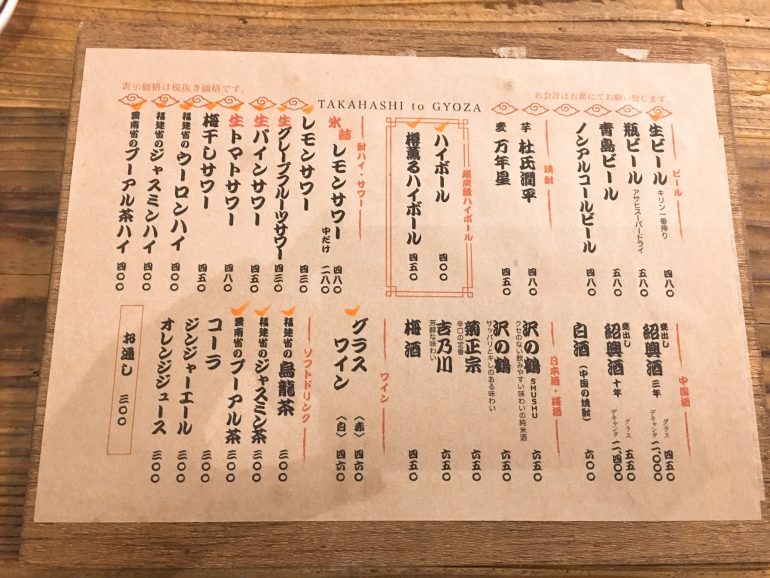 表示価格は税抜き価格です。
お会計はお席にてお願い致します。
TAKAHASHI to GYOZA
ビール
生ビール キリン一番搾り 四八〇
瓶ビール アサヒスーパードライ 五八〇
青島ビール 五八〇
ノンアルコールビール 四八〇
焼酎
芋 杜氏潤平 四八〇
麦 万年星 四五〇
超炭酸ハイボール
ハイボール 四〇〇
樽薫るハイボール 四五〇
酎ハイ・サワー
氷結レモンサワー 四八〇
中だけ 二八〇
レモンサワー 四三〇
生グレープフルーツサワー 四三〇
生パインサワー 四五〇
生トマトサワー 四八〇
梅干しサワー 四五〇
福建省のウーロンハイ 四〇〇
福建省のジャスミンハイ 四〇〇
雲南省のプーアル茶ハイ 四〇〇
中国酒
甕出し 紹興酒 三年 グラス 四五〇
デキャンタ 二、〇〇〇
甕出し 紹興酒 十年 グラス 五五〇
デキャンタ 二、四〇〇
白酒 (中国の焼酎) 六〇〇
日本酒・梅酒
沢の鶴 SHUSHU 六五〇
クセのない飲みやすい味わいの純米酒
沢の鶴 六五〇
サッパリとキレのある味わい
菊正宗 六五〇
辛口の定番
吉乃川 六五〇
芳醇な味わい
梅酒 四五〇
ワイン
グラスワイン 〈赤〉 四六〇
〈白〉 四六〇
ソフトドリンク
福建省の烏龍茶 三〇〇
福建省のジャスミン茶 三〇〇
雲南省のプーアル茶 三〇〇
コーラ 三〇〇
ジンジャーエール 三〇〇
オレンジジュース 三〇〇
お通し 三〇〇